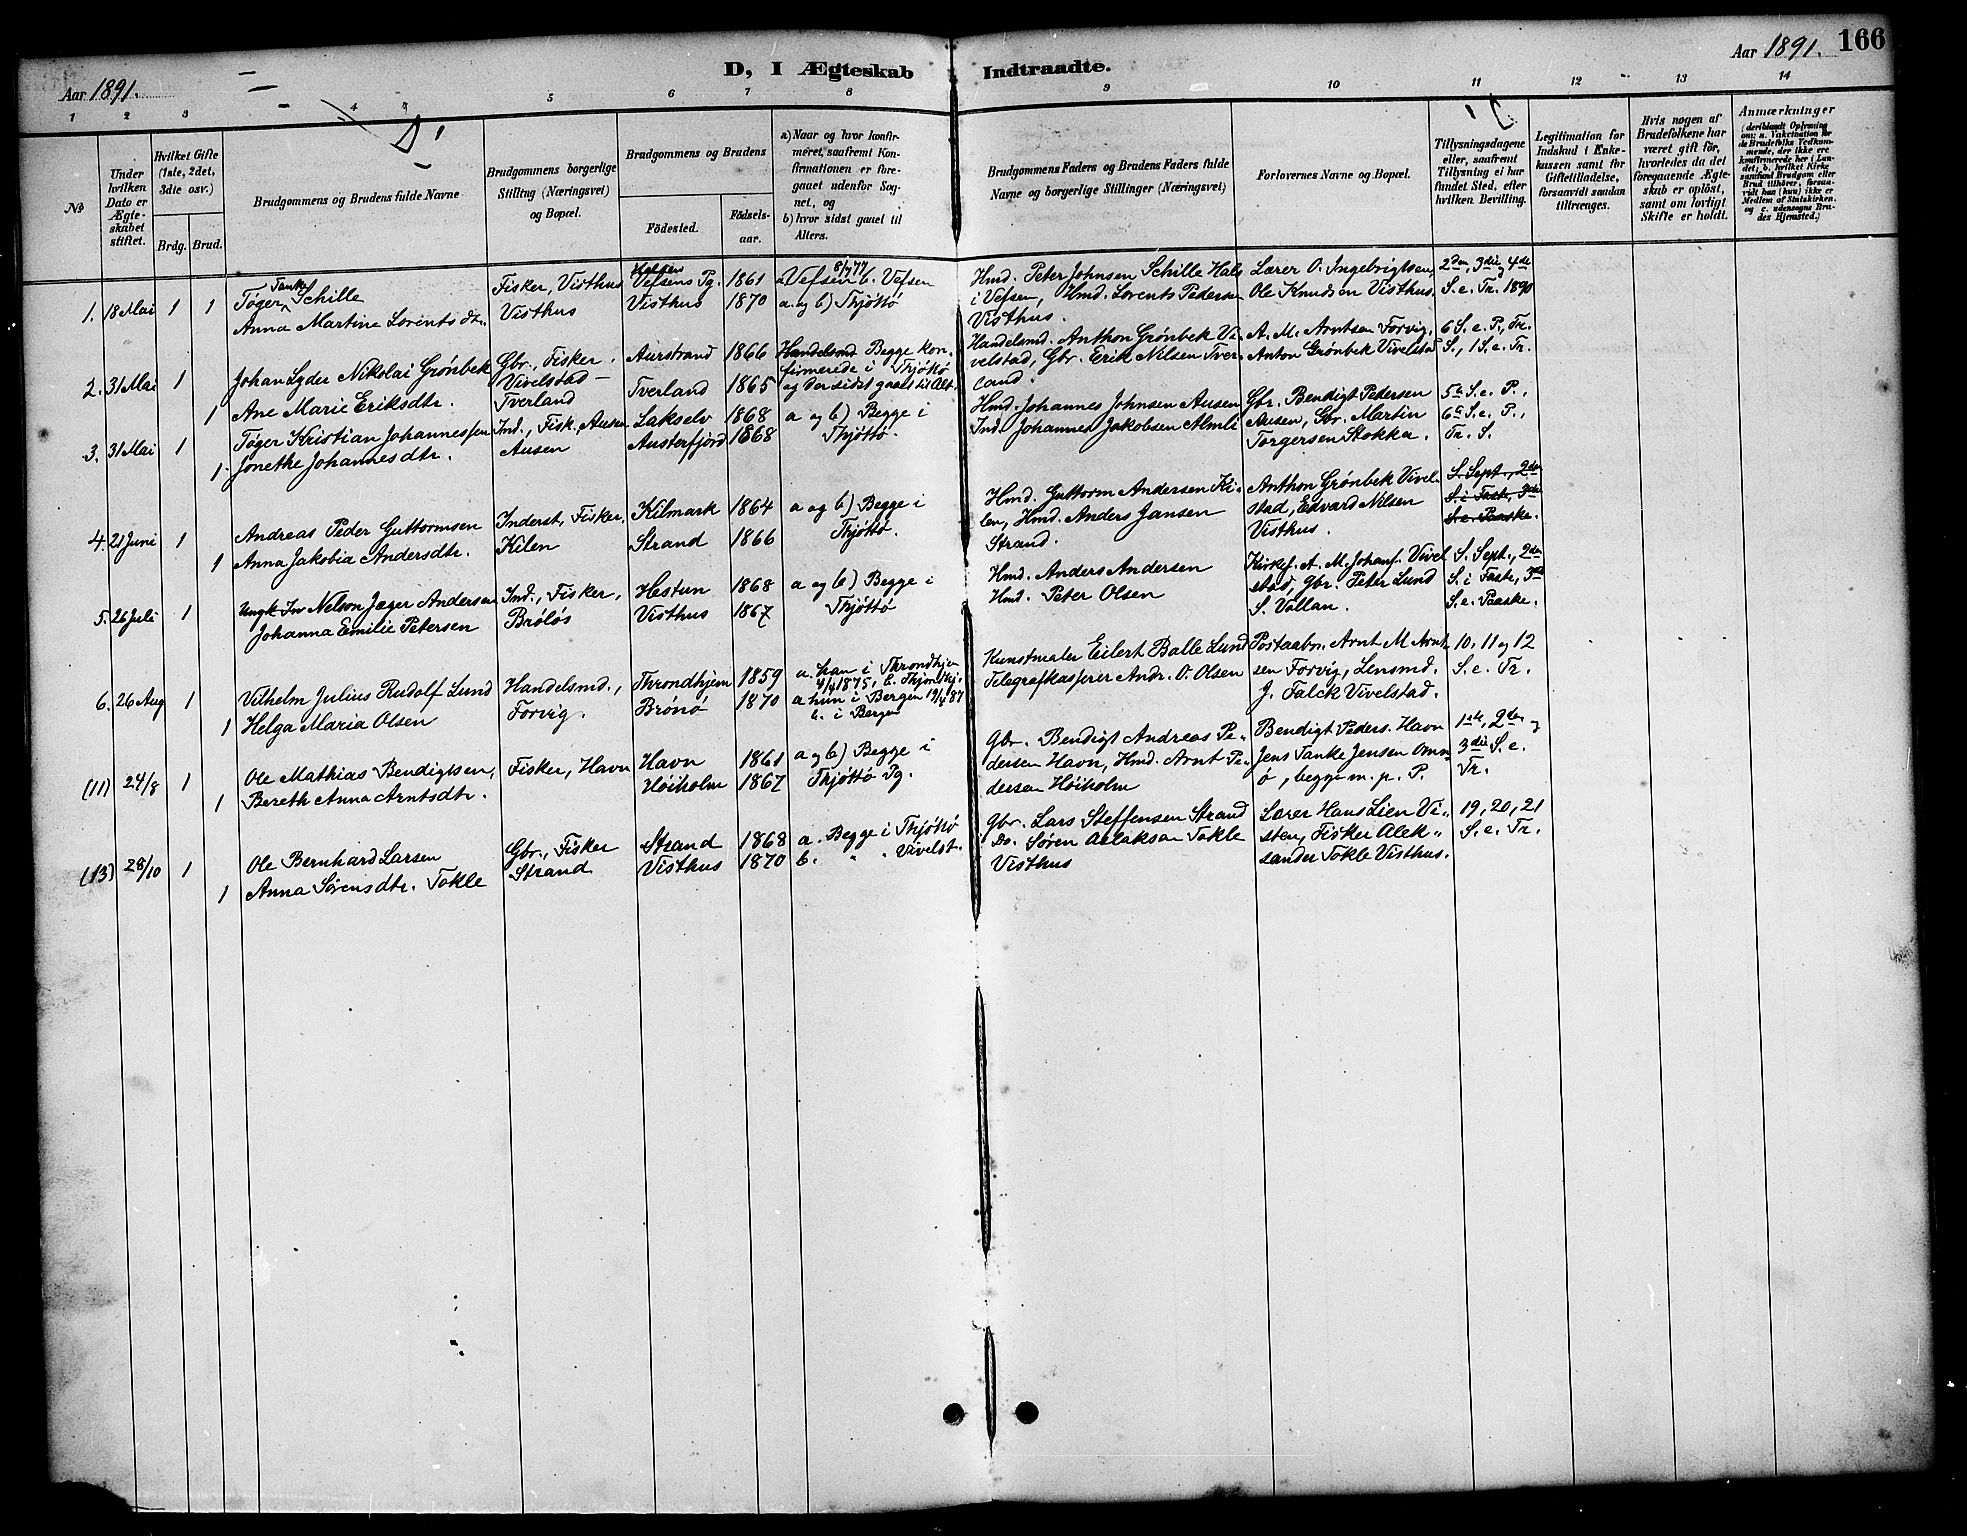 166
D, I Ægteskab Indtraadte.
Aar 1891.
Aar 1891.
1 2 3 4 5 6 7 8 9 10 11 12 13 14
No
Under hvilken Dato er Ægteskabet stiftet.
Hvilket Gifte (1ste, 2det, 3die osv.)
Brdg. Brud.
Brudgommens og Brudens fulde Navne
Brudgommens borgerlige Stilling (Næringsvei) og Bopæl.
Brudgommens og Brudens
Födested.
Födsels-aar.
a) Naar og hvor konfirmeret, saafremt Konfirmationen er foregaaet udenfor Sognet, og
b) hvor sidst gaaet til Alters.
Brudgommens Faders og Brudens Faders fulde Navne og borgerlige Stillinger (Næringsvei)
Forlovernes Navne og Bopæl.
Tillysningsdagene eller, saafremt Tillysning ei har fundet Sted, efter hvilken Bevilling.
Legitimation for Indskud i Enkekassen samt for Giftetilladelse, forsaavidt saadan tiltrænges.
Hvis nogen af Brudefolkene har været gift för, hvorledes da det foregaaende Ægteskab er oplöst, samt om lovligt Skifte er holdt.
Anmærkninger
(deriblandt Oplysning om: a. Vakcination for de Brudefolks Vedkommende, der ikke ere konfirmerede her i Landet; b. hvilket Kirkesamfund Brudgom eller Brud tilhörer, forsaavidt han (hun) ikke er Medlem af Statskirken, og c. udensogns Brudes Hjemsted.)
1. 18 Mai 1 1 Töger Tanke Schille Fisker, Visthus Halsen Vefsens Pg. 1861 a Vefsen 8/7 77 b. Vefsen Hmd. Peter Johnsen Schille Hals Lærer O. Ingebrigtsen, 2den, 3die og 4de
Anna Martine Lorentsdtr. Visthus Visthus 1870 a. og b) Thjöttö i Vefsen, Hmd. Lorents Pedersen Ole Knudsen Visthus. S. e. Tr. 1890
Visthus.
2. 31 Mai 1 Johan Lyder Nikolai Grönbek Gbr., Fisker. Aurstrand 1866 Handelsmd Begge kon- Handelsmd. Anthon Grönbek Vi- A. M. Arntsen Forvig, 6 S. e. P., Tr.
Vivelstad - firmerede i Thjöttö velstad, Gbr. Erik Nilsen Tver- Anton Grönbek Vivelstad S., 1 S. e. Tr.
1 Ane Marie Eriksdtr. Tverland Tverland 1865 og der sidst gaaet til Alt. land.
3. 31 Mai 1 Töger Kristian Johannessen Ind., Fisk. Ausen Lakselv 1868 a og b) Begge i Hmd. Johannes Johnsen Ausen Gbr. Bendigt Pedersen 5te S. e. P.,
1 Jonethe Johannesdtr. Ausen Austerfjord 1868 Thjöttö. Ind. Johannes Jakobsen Almli Ausen, Gbr. Martin 6te S. e. P.,
Torgersen Stokka. Tr. S.
4. 21 Juni 1 Andreas Peder Guttormsen Inderst, Fisker, Kilmark 1864 a og b) Begge i Hmd. Guttorm Andersen Ki- Anthon Grönbek Vivel- S. Sept., 2den
1 Anna Jakobia Andersdtr. Kilen Strand 1866 Thjöttö. len, Hmd. Anders Jansen stad, Edvard Nilsen S. i Faste, 3die
Strand. Visthus. S. e. Paaske.
5. 26 Juli 1 Ungk Inr Nelson Jæger Andersen Ind., Fisker, Hestun 1868 a og b) Begge i Hmd. Anders Andersen Kirkes. A. M. Johans. Vivel S. Sept., 2den
Johanna Emilie Petersen Brölös Visthus 1867 Thjöttö Hmd. Peter Olsen stad, Gbr. Peter Lund S. i Faste, 3die
S. Vollan. S. e. Paaske.
6. 26 Aug 1 Vilhelm Julius Rudolf Lund Handelsmd., Throndhjem 1859 a. han i Throndhjem Kunstmaler Eilert Balle Lund Postaabn. Arnt M Arnt- 10, 11 og 12
4/4 1875,
1 Helga Maria Olsen Forvig. Brönö 1870 a hun i Bergen 19/4 87 Telegrafkasserer Andr. O. Olsen sen Forvig, Lensmd. S. e. Tr.
b. i Bergen J. Falck Vivelstad.
(11) 24/8 1 Ole Mathias Bendigtsen, Fisker, Havn Havn 1861 a og b) Begge i Gbr. Bendigt Andreas Pe- Bendigt Peders. Havn 1ste, 2den og
1 Bereth Anna Arntsdtr. Höiholm 1867 Thjöttö Pg. dersen Havn, Hmd. Arnt Pe- Jens Tanke Jensen Omn- 3die S. e.
dersen Höiholm ö, begge m. p. P. Tr.
(13) 28/10 1 Ole Bernhard Larsen Gbr., Fisker Strand 1868 a. Begge i Thjöttö Gbr. Lars Steffensen Strand Lærer Hans Lien Vi- 19, 20, 21
1 Anna Sörensdtr. Tokle Strand Visthus 1870 b. " " Vivelst. Do. Sören Aslaksen Tokle sten, Fisker Alek- S. e. Tr.
Visthus sander Tokle Visthus.